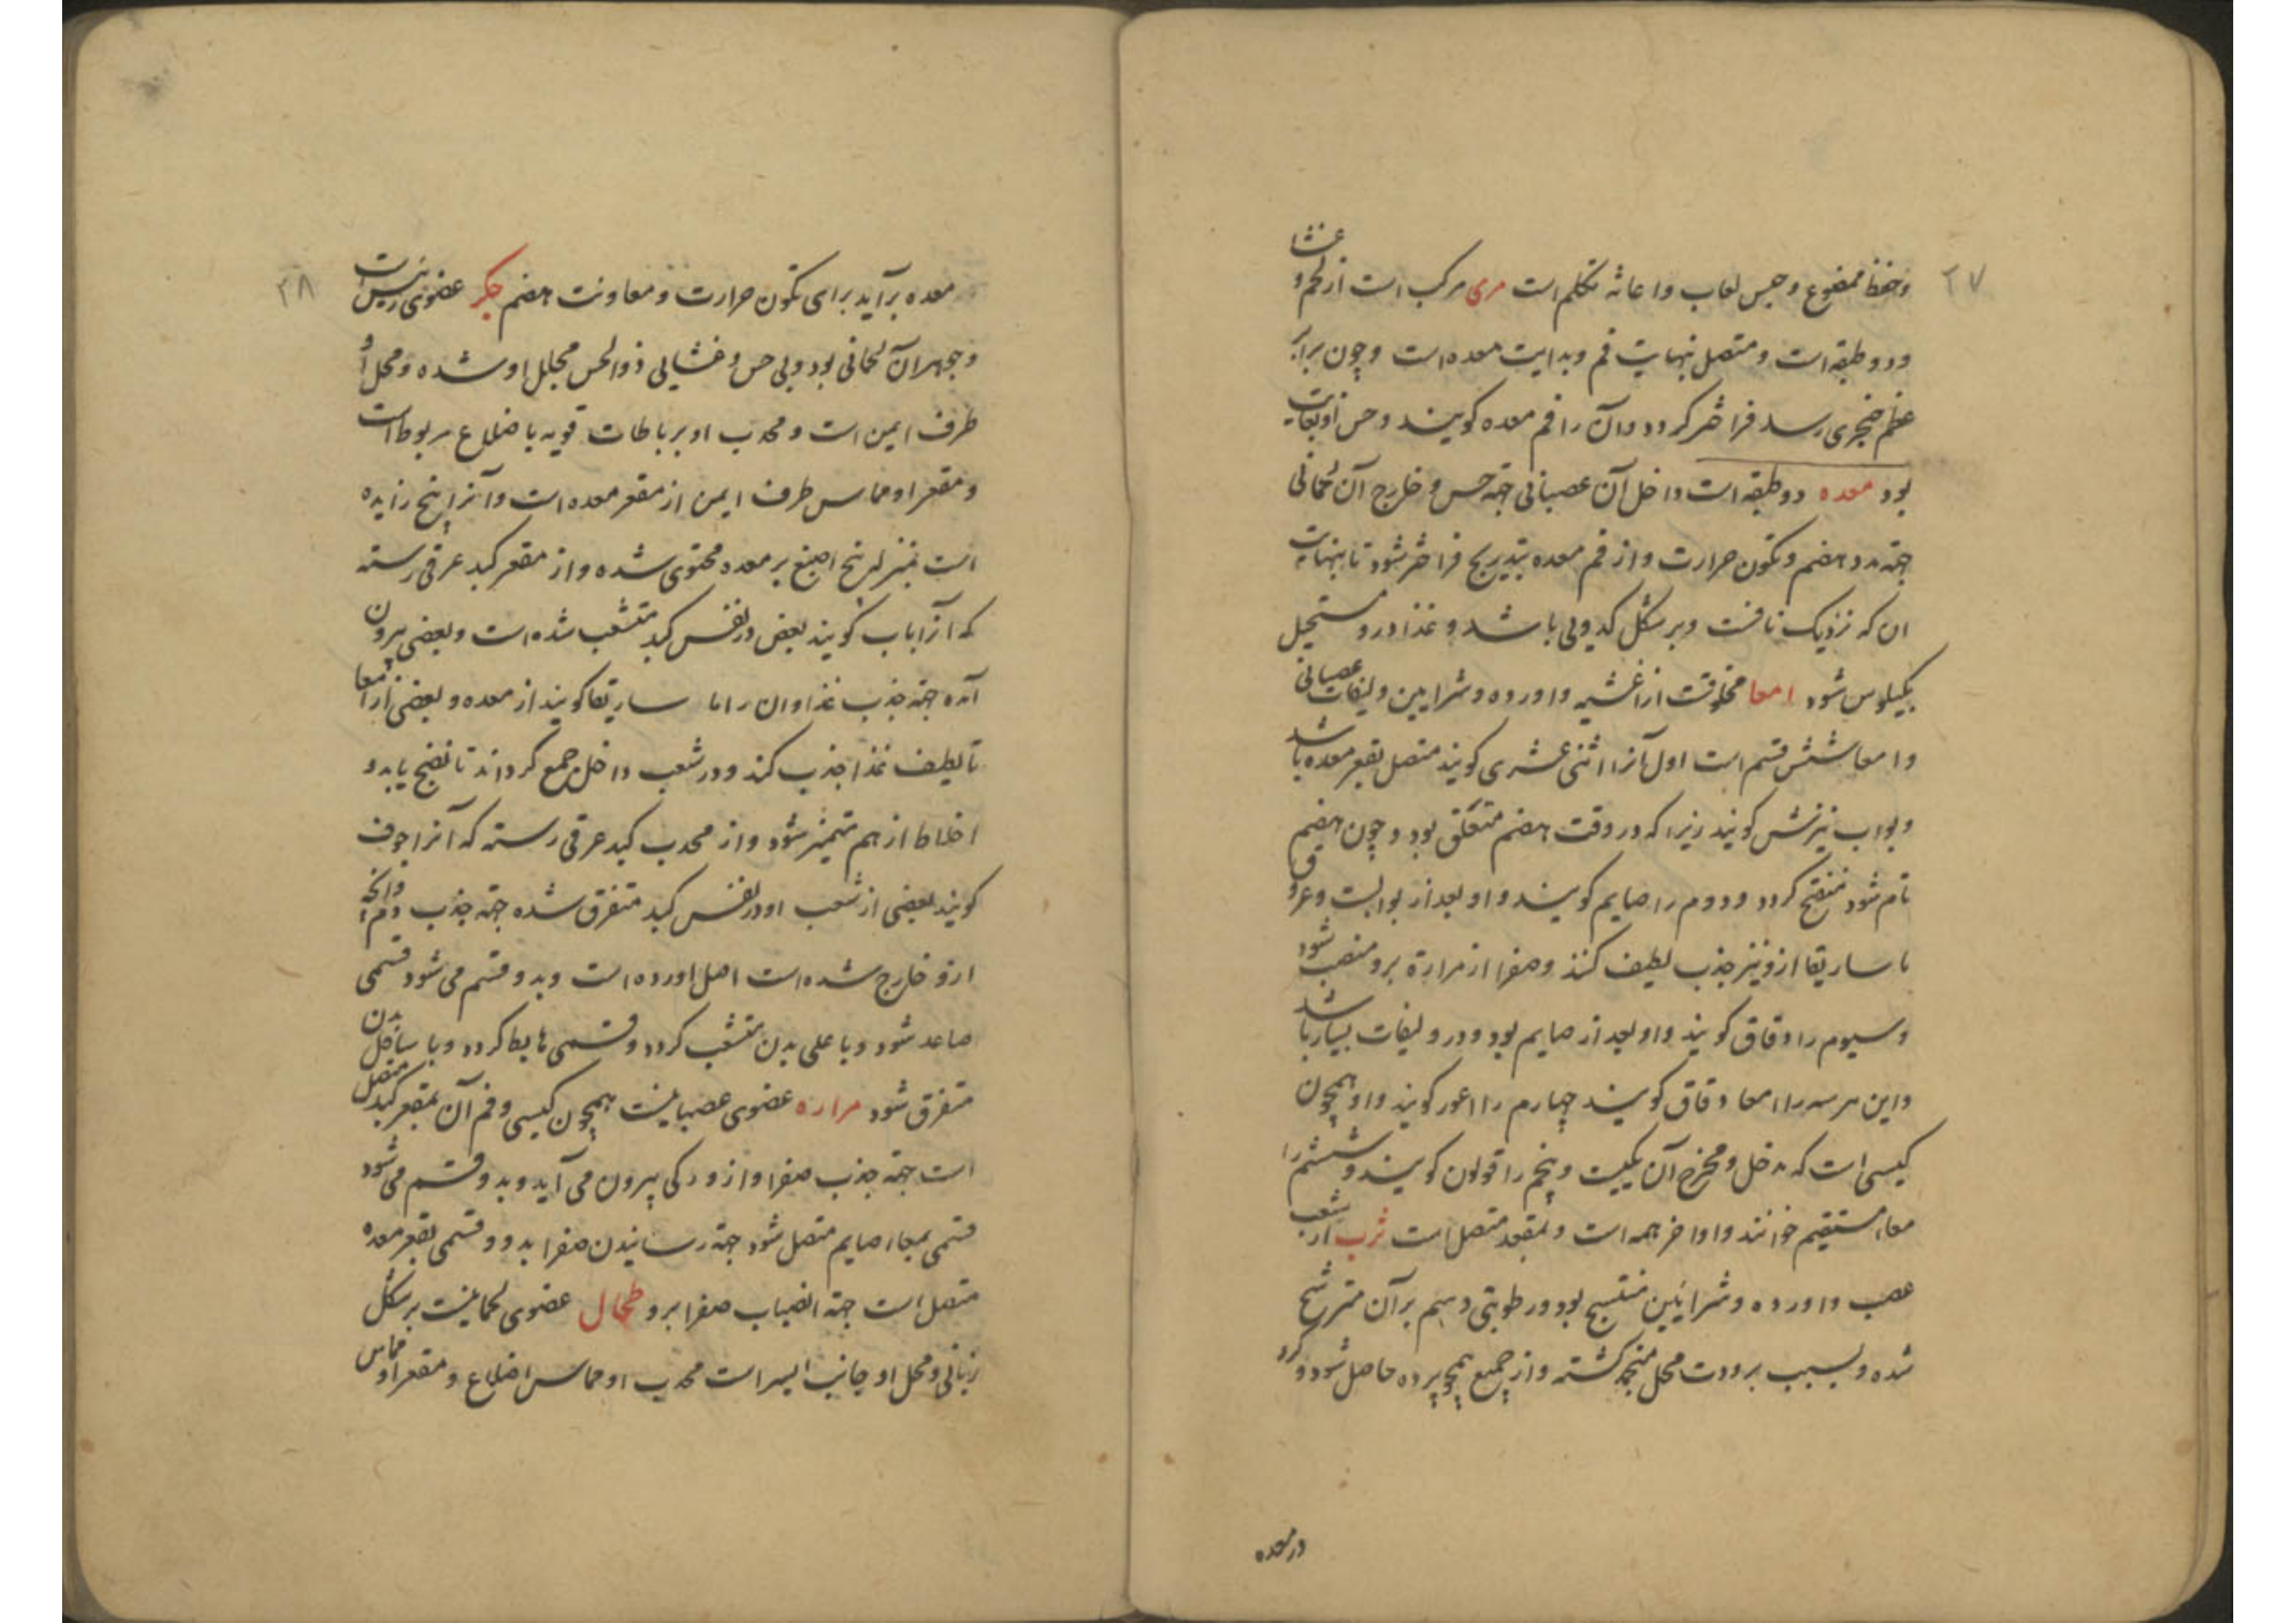 ۲۷
وحفظ ممضوغ وحبس لعاب واعانهٔ تکلم است مری مرکب است از لحم و غشا
ودو طبقه است ومتصل نهایت فم وبدایت معده است وچون برابر
عظم خنجری رسد فراختر کردد وآن را فم معده کویند وحس او بغایت
بود معده دو طبقه است داخل آن عصبانی جهة حس وخارج آن لحمانی
جهة مدد هضم وتکون حرارت واز فم معده بتدریج فراختر شود تا بنهایت
ان که نزدیک نافست وبر شکل کدویی باشد وغذا درو مستحیل
بکیلوس شود امعا مخلوقست از اغشیه واورده وشرایین ولیفات عصبانی
وامعا شش قسم است اول آنرا اثنی عشری کویند متصل بقعر معده باشد
وبواب نیزش کویند زیرا که در وقت هضم منغلق بود وچون هضم
تام شود منفتح کردد ودوم را صایم کویند واو بعد از بوابست وعروق
ماساریقا ازو نیز جذب لطیف کنند وصفرا از مرارة برو منصب شود
وسیوم را دقاق کویند واو بعد از صایم بود ودرو لیفات بسیار باشد
واین هر سه را امعا دقاق کویند چهارم را اعور کویند واو همچون
کیسی است که مدخل ومخرج آن یکیست وپنجم را قولون کویند وششم را
معا مستقیم خوانند واو اخر همه است وبمقعد متصل است ثرب از شعب
عصب واورده وشرایین منتسج بود ورطوبتی دسم برآن مترشح
شده وبسبب برودت محل منجمد کشته واز جمیع همچو پرده حاصل شود وکرد
در معده
۲۸
معده برآید برای تکون حرارت ومعاونت هضم جکر عضوی رییس است
وجوهر آن لحمانی بود وبی حس وغشایی ذوالحس مجلل او شده ومحل او
طرف ایمن است ومحدب او برباطات قویه باضلاع مربوط است
ومقعر او مماس طرف ایمن از مقعر معده است وآنرا پنج زایده
است بمنزله پنج اصبع بر معده محتوی شده واز مقعر کبد عرقی رسته
که آنرا باب کویند بعض در نفس کبد متشعب شده است وبعضی بیرون
آمده جهة جذب غذا وان را ماساریقا کویند از معده وبعضی از امعا
تا لطیف غذا جذب کند ودر شعب داخل جمع کرداند تا نضج یابد و
اخلاط از هم متمیز شود واز محدب کبد عرقی رسته که آنرا اجوف
کویند بعضی از شعب او در نفس کبد متفرق شده جهة جذب دم وانچه
ازو خارج شده است اصل اورده است وبدو قسم می شود قسمی
صاعد شود وباعلی بدن متشعب کردد وقسمی هابط کردد وباسافل بدن
متفرق شود مراره عضوی عصبانیست همچون کیسی وفم آن بمقعر کبد متصل
است جهة جذب صفرا واز و رکی بیرون می آید وبدو قسم می شود
قسمی بمعا صایم متصل شود جهة رسانیدن صفرا بدو وقسمی بقعر معده
متصل است جهة انصباب صفرا برو طحال عضوی لحمانیست بر شکل
زبانی ومحل او جانب ایسر است محدب او مماس اضلاع ومقعر او مماس